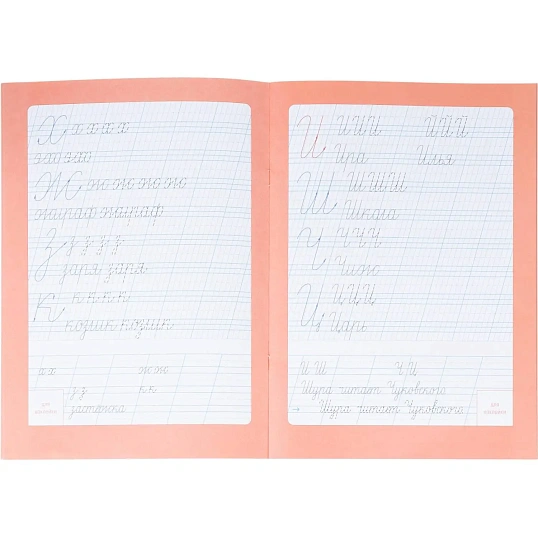 Х х х х х
эхо эхо
Ж ж ж ж ж
жираф жираф
З з з з з
заря заря
К к к к к
козлик козлик
х х ж ж
з з к к
застёжка
И И И И Й Й Й
Ира Илья
Ш Ш Ш Ш
Школа
Ч Ч Ч Ч
Чиж
Ц Ц Ц Ц
Царь
И Ш Ч Ц
Шура читает Чуковского
Шура читает Чуковского